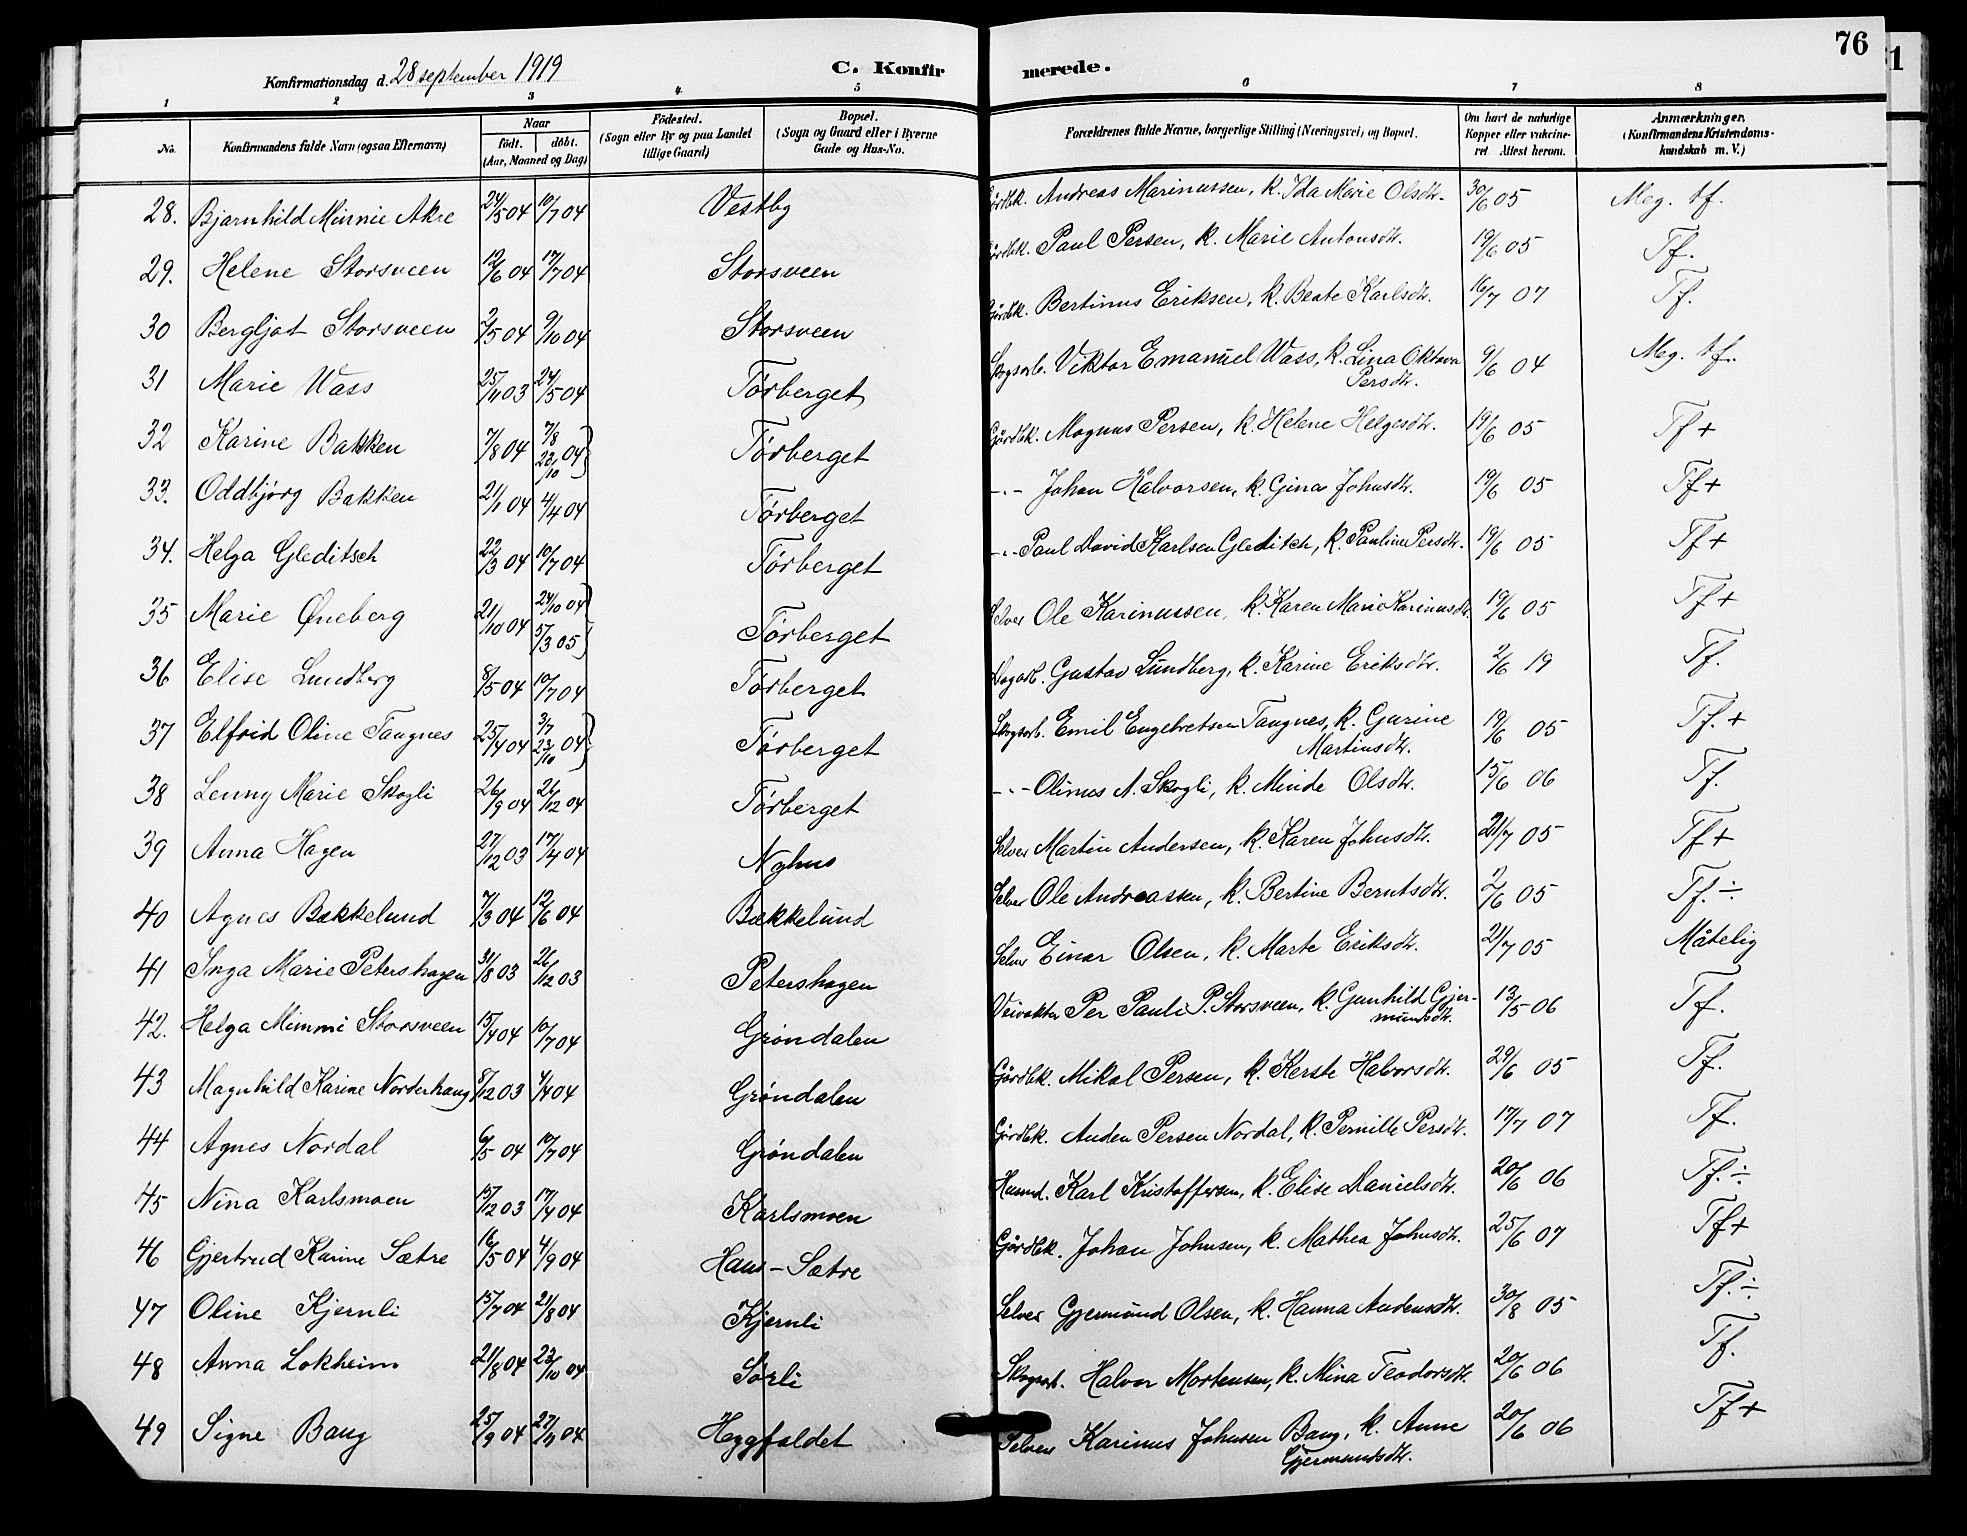 76
1
Konfirmationsdag d. 28 september 1919
C. Konfir merede.
1 2 3 4 5 6 7 8
No. Konfirmandens fulde Navn (ogsaa Efternavn) Naar födt. döbt. (Aar, Maaned og Dag) Födested. (Sogn eller By og paa Landet tillige Gaard) Bopæl. (Sogn og Gaard eller i Byerne Gade og Hus-No. Forældrenes fulde Navne, borgerlige Stilling (Næringsvei) og Bopæl. Om havt de naturlige Kopper eller vakcineret Attest herom. Anmærkninger. (Konfirmandens Kristendomskundskab m. V.)
28. Bjarnhild Minnie Akre 24/5 04 10/7 04 Vestby Gårdbk. Andreas Marinussen, k. Ida Marie Olsdtr. 30/6 05 Meg. tf.
29. Helene Storsveen 12/6 04 17/7 04 Storsveen Gårdbk. Paul Persen, k. Marie Antonsdtr. 19/6 05 Tf.
30 Bergljot Storsveen 2/5 04 9/10 04 Storsveen Gårdbk. Bertinus Eriksen, k. Beate Karlsdtr. 16/7 07 Tf.
31 Marie Wass 25/11 03 24/5 04 Törberget Skogsarb. Viktor Emanuel Wass, k. Lina Oktava Persdtr. 9/6 04 Meg. tf.
32 Karine Bakken 7/8 04 7/8 23/10 04} Törberget Gårdbk. Magnus Persen, k. Helene Helgesdtr. 19/6 05 Tf +
33. Oddbjörg Bakken 21/1 04 4/4 04 Törberget -"- Johan Halvorsen, k. Gina Johnsdtr. 19/6 05 Tf +
34. Helga Gleditsch 22/3 04 10/7 04 Törberget -"- Paul David Karlsen Gleditch, k. Pauline Persdtr. 19/6 05 Tf +
35 Marie Øneberg 21/10 04 24/10 04 5/3 05} Törberget Selvei Ole Karinussen, k. Karen Marie Karinusdtr. 19/6 05 Tf +
36 Elise Lundberg 8/5 04 10/7 04 Törberget Dagarb. Gustav Lundberg, k. Karine Eriksdtr. 2/6 19 Tf.
37 Elfrid Oline Tangnes 25/4 04 3/7 23/10 04} Törberget Skogsarb. Emil Engebretsen Tangnes, k. Gurine Martinsdtr. 19/6 05 Tf. +
38 Lenny Marie Skogli 26/9 04 26/12 04 Törberget -"- Olinus A. Skogli, k. Minde Olsdtr. 15/6 06 Tf.
39 Anna Hagen 27/12 03 17/4 04 Nyhus Selvei Martin Andersen, k. Karen Johnsdtr. 21/7 05 Tf +
40 Agnes Bækkelund 7/3 04 12/6 04 Bækkelund Selvei Ole Andreassen, k. Bertine Berntsdtr. 2/6 05 Tf. ÷
41 Inga Marie Petershagen 31/8 03 26/12 03 Petershagen Selvei Einar Olsen, k. Marte Eriksdtr. 21/7 05 Måtelig
42. Helga Mimmi Storsveen 15/4 04 10/7 04 Gröndalen Veivokter Per Pauli P. Storsveen, k. Gunhild Gjermundsdtr. 13/5 06 Tf.
43 Magnhild Karine Norderhaug 8/12 03 4/4 04 Gröndalen Gårdbk. Mikal Persen, k. Kerste Halvorsdtr. 29/6 05 Tf.
44 Agnes Nordal 6/5 04 10/7 04 Gröndalen Gårdbk. Auden Persen Nordal, k. Pernille Persdtr. 17/7 07 Tf.
45 Nina Karlsmoen 15/12 03 17/4 04 Karlsmoen Husmd. Karl Kristoffersen, k. Elise Danielsdtr. 20/6 06 Tf. ÷
46 Gjertrud Karine Sætre 16/5 04 4/9 04 Haus-Sætre Gårdbk. Johan Johnsen, k. Mathea Johnsdtr. 25/6 07 Tf +
47 Oline Kjernli 15/7 04 21/8 04 Kjernli Selvei Gjermund Olsen, k. Hanna Audensdtr. 30/8 05 Tf. ÷
48 Anna Lokheim 21/8 04 23/10 04 Sörli Skogsarb. Halvor Mortensen, k. Mina Teodorsdtr. 20/6 06 Tf.
49 Signe Baug 25/9 04 27/11 04 Heggfaldet Selvei Karinus Johnsen Baug, k. Anne Gjermundsdtr. 20/6 06 Tf +